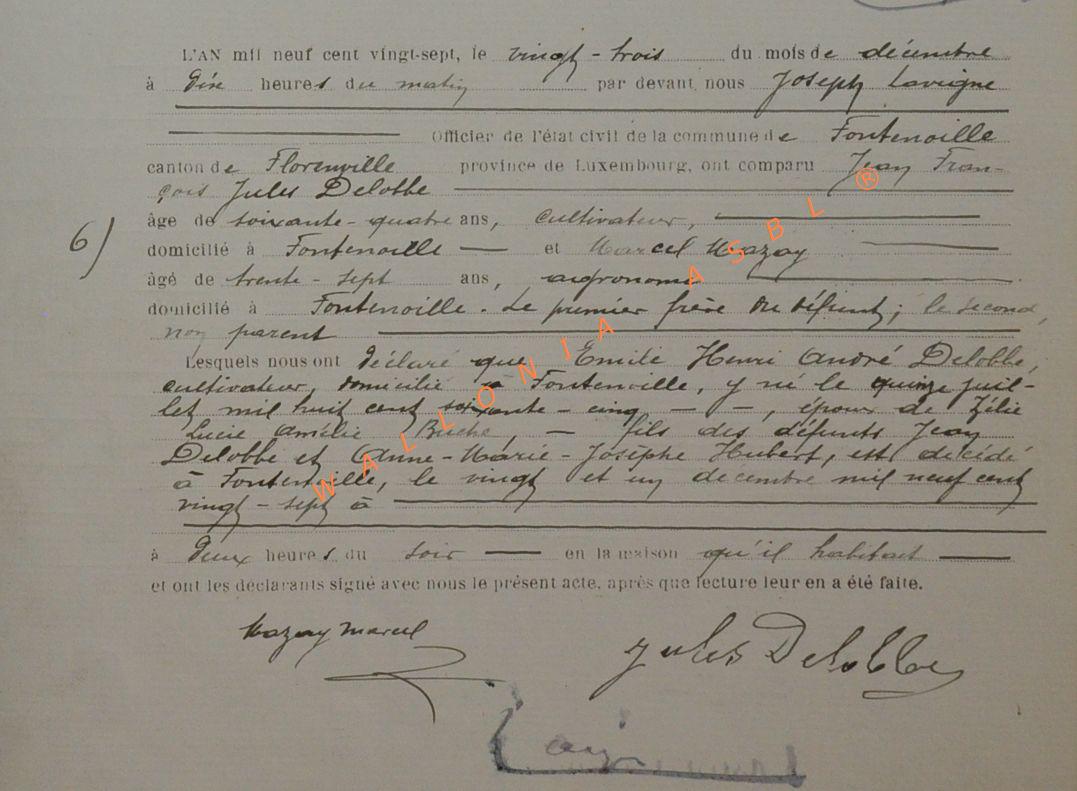 L'AN mil neuf cent vingt-sept, le vingt-trois du mois de décembre
à dix heures du matin par devant nous Joseph Lavigne
Officier de l'état civil de la commune de Fontenoille
canton de Florenville province de Luxembourg, ont comparu Jean Fran-
çois Jules Delobbe
âge de soixante-quatre ans, cultivateur,
6) domicilié à Fontenoille et Marcel Mazay
âgé de trente-sept ans, agronome
domicilié à Fontenoille. Le premier frère du défunt; le second,
non parent
Lesquels nous ont déclaré que Emile Henri André Delobbe,
cultivateur, domicilié à Fontenoille, y né le quinze juil-
let mil huit cent soixante-cinq - -, époux de Zélie
Lucie Amélie Buche, - fils des défunts Jean
Delobbe et Anne-Marie-Josèphe Hubert, est décédé
à Fontenoille, le vingt et un décembre mil neuf cent
vingt-sept à
à deux heures du soir en la maison qu'il habitait
et ont les déclarants signé avec nous le présent acte, après que lecture leur en a été faite.
Mazay Marcel Jules Delobbe
WALLONIA ASBL ®